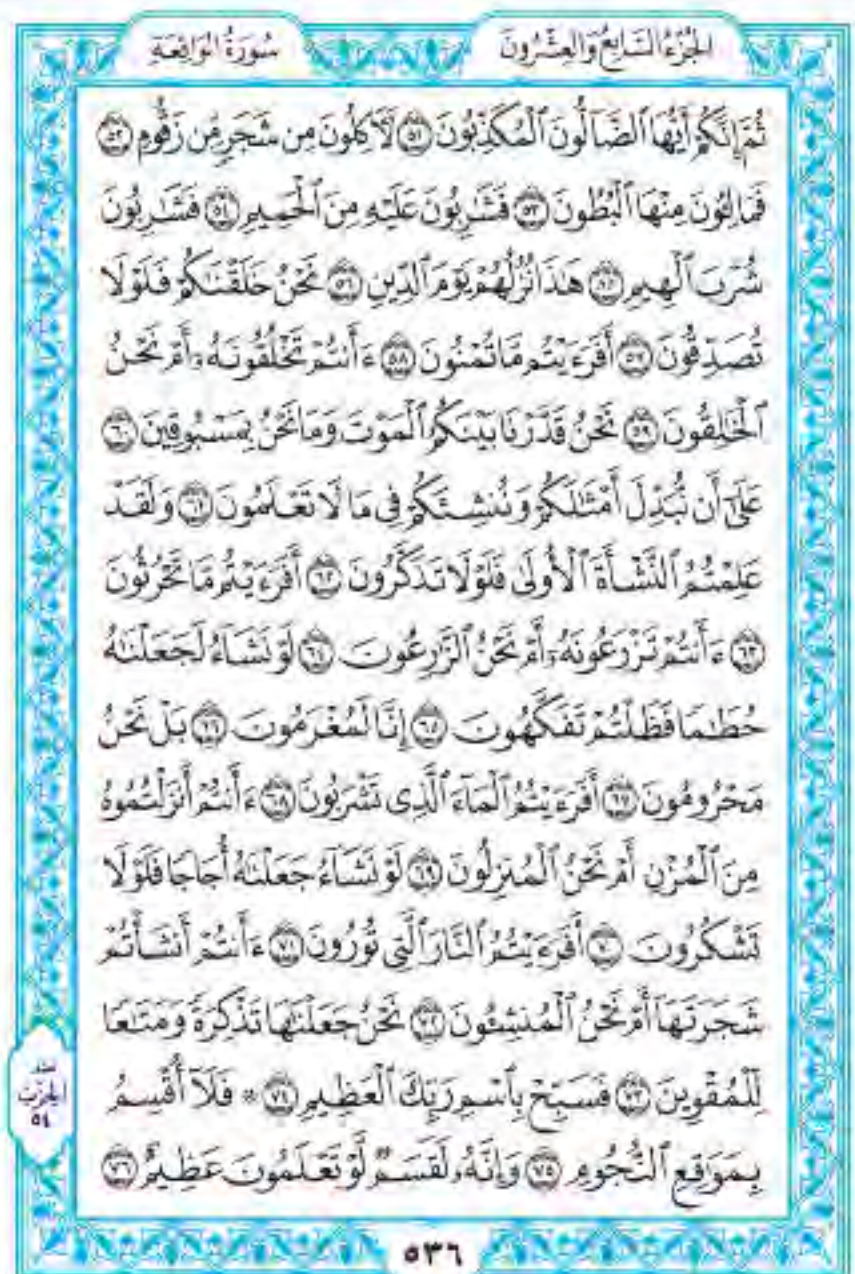 الجُزْءُ السَّابِعُ وَالعِشْرُونَ سُورَةُ الوَاقِعَةِ
ثُمَّ إِنَّكُمْ أَيُّهَا ٱلضَّآلُّونَ ٱلْمُكَذِّبُونَ ٥١ لَأٓكِلُونَ مِن شَجَرٍ مِّن زَقُّومٍ ٥٢
فَمَالِـُٔونَ مِنْهَا ٱلْبُطُونَ ٥٣ فَشَٰرِبُونَ عَلَيْهِ مِنَ ٱلْحَمِيمِ ٥٤ فَشَٰرِبُونَ
شُرْبَ ٱلْهِيمِ ٥٥ هَٰذَا نُزُلُهُمْ يَوْمَ ٱلدِّينِ ٥٦ نَحْنُ خَلَقْنَٰكُمْ فَلَوْلَا
تُصَدِّقُونَ ٥٧ أَفَرَءَيْتُم مَّا تُمْنُونَ ٥٨ ءَأَنتُمْ تَخْلُقُونَهُۥٓ أَمْ نَحْنُ
ٱلْخَٰلِقُونَ ٥٩ نَحْنُ قَدَّرْنَا بَيْنَكُمُ ٱلْمَوْتَ وَمَا نَحْنُ بِمَسْبُوقِينَ ٦٠
عَلَىٰٓ أَن نُّبَدِّلَ أَمْثَٰلَكُمْ وَنُنشِئَكُمْ فِى مَا لَا تَعْلَمُونَ ٦١ وَلَقَدْ
عَلِمْتُمُ ٱلنَّشْأَةَ ٱلْأُولَىٰ فَلَوْلَا تَذَكَّرُونَ ٦٢ أَفَرَءَيْتُم مَّا تَحْرُثُونَ
٦٣ ءَأَنتُمْ تَزْرَعُونَهُۥٓ أَمْ نَحْنُ ٱلزَّٰرِعُونَ ٦٤ لَوْ نَشَآءُ لَجَعَلْنَٰهُ
حُطَٰمًا فَظَلْتُمْ تَفَكَّهُونَ ٦٥ إِنَّا لَمُغْرَمُونَ ٦٦ بَلْ نَحْنُ
مَحْرُومُونَ ٦٧ أَفَرَءَيْتُمُ ٱلْمَآءَ ٱلَّذِى تَشْرَبُونَ ٦٨ ءَأَنتُمْ أَنزَلْتُمُوهُ
مِنَ ٱلْمُزْنِ أَمْ نَحْنُ ٱلْمُنزِلُونَ ٦٩ لَوْ نَشَآءُ جَعَلْنَٰهُ أُجَاجًا فَلَوْلَا
تَشْكُرُونَ ٧٠ أَفَرَءَيْتُمُ ٱلنَّارَ ٱلَّتِى تُورُونَ ٧١ ءَأَنتُمْ أَنشَأْتُمْ
شَجَرَتَهَآ أَمْ نَحْنُ ٱلْمُنشِـُٔونَ ٧٢ نَحْنُ جَعَلْنَٰهَا تَذْكِرَةً وَمَتَٰعًا
لِّلْمُقْوِينَ ٧٣ فَسَبِّحْ بِٱسْمِ رَبِّكَ ٱلْعَظِيمِ ٧٤ ۞ فَلَآ أُقْسِمُ
بِمَوَٰقِعِ ٱلنُّجُومِ ٧٥ وَإِنَّهُۥ لَقَسَمٌ لَّوْ تَعْلَمُونَ عَظِيمٌ ٧٦
الحِزْب
٥٤
٥٣٦